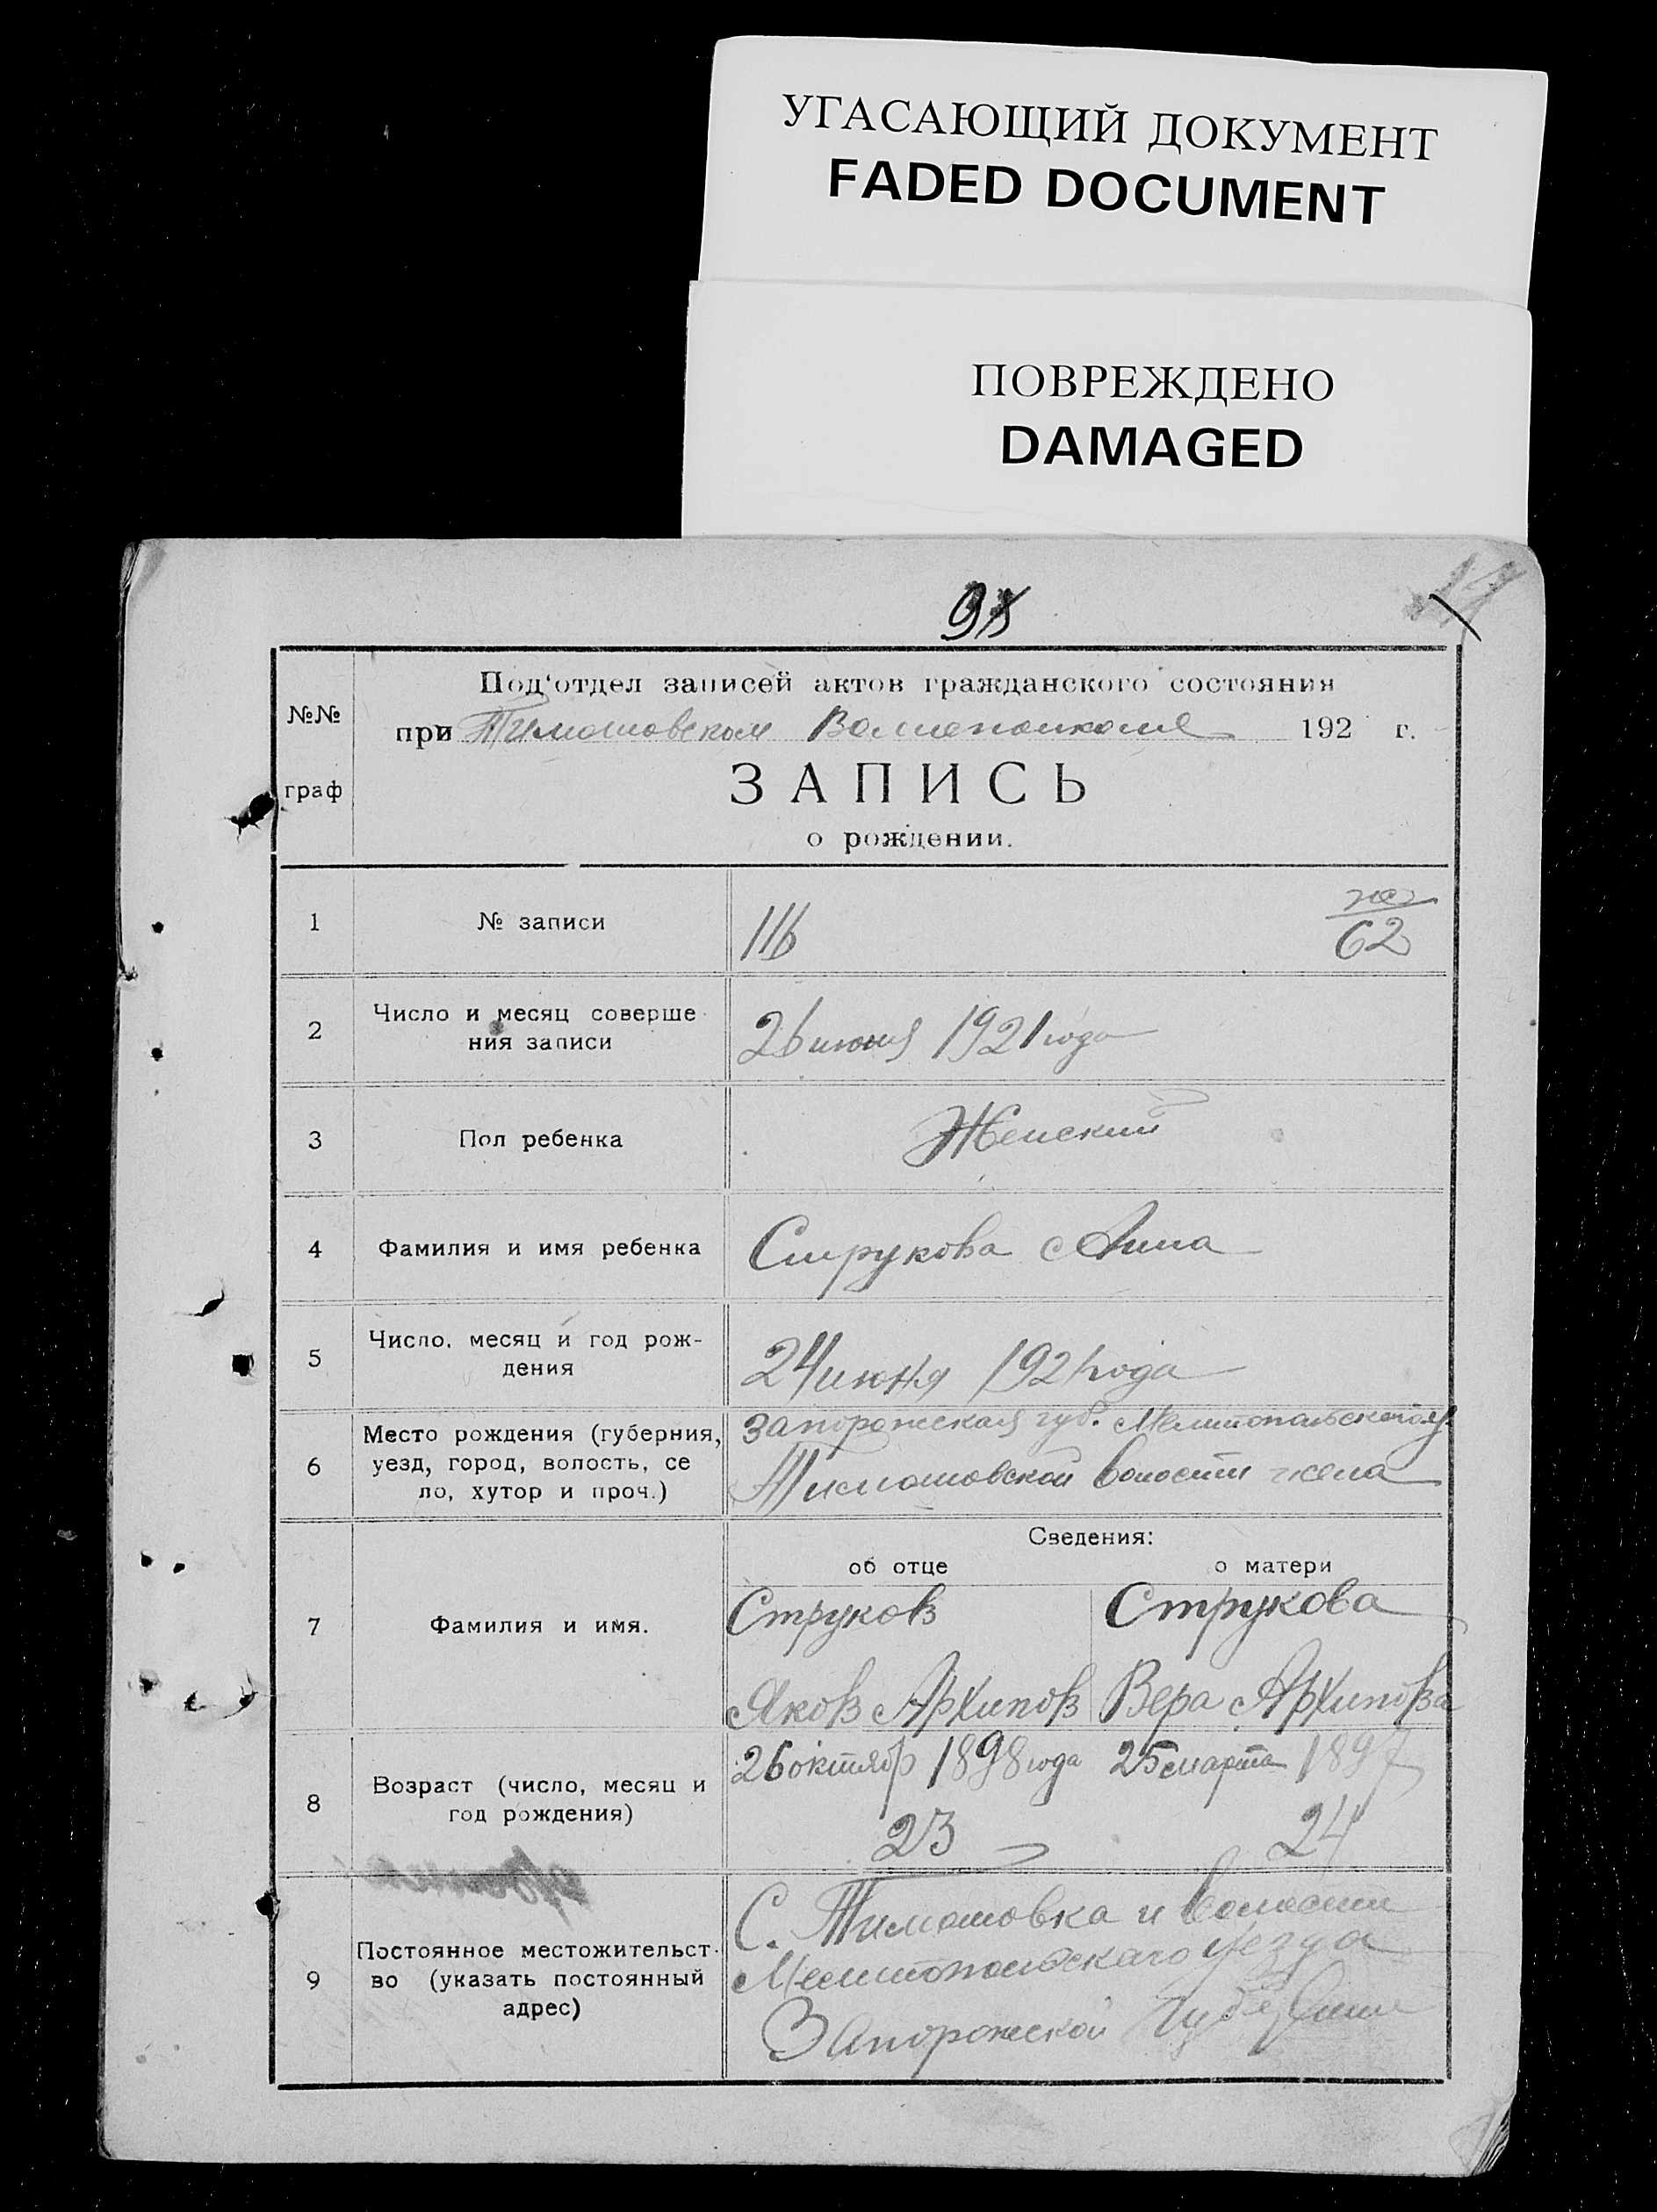 УГАСАЮЩИЙ ДОКУМЕНТ
FADED DOCUMENT
ПОВРЕЖДЕНО
DAMAGED
№№ граф
Под'отдел записей актов гражданского состояния
при Тимошовском Волисполкоме 192 г.
ЗАПИСЬ
о рождении.
1 № записи 116 62
2 Число и месяц соверше
ния записи 26 июня 1921 года
3 Пол ребенка Женский
4 Фамилия и имя ребенка Струкова Анна
5 Число, месяц и год рож-
дения 24 июня 1921 года
6 Место рождения (губерния,
уезд, город, волость, се
ло, хутор и проч.)
Запорожская губ. Мелитопольского у.
Тимошовской волости
Сведения:
об отце о матери
7 Фамилия и имя.
Струков Струкова
Яков Архипов Вера Архипова
8 Возраст (число, месяц и
год рождения)
26 октябр 1898 года 25 марта 1897
23 24
9 Постоянное местожительст
во (указать постоянный
адрес)
С. Тимошовка и волости
Мелитопольскаго уезда
Запорожской Губернии